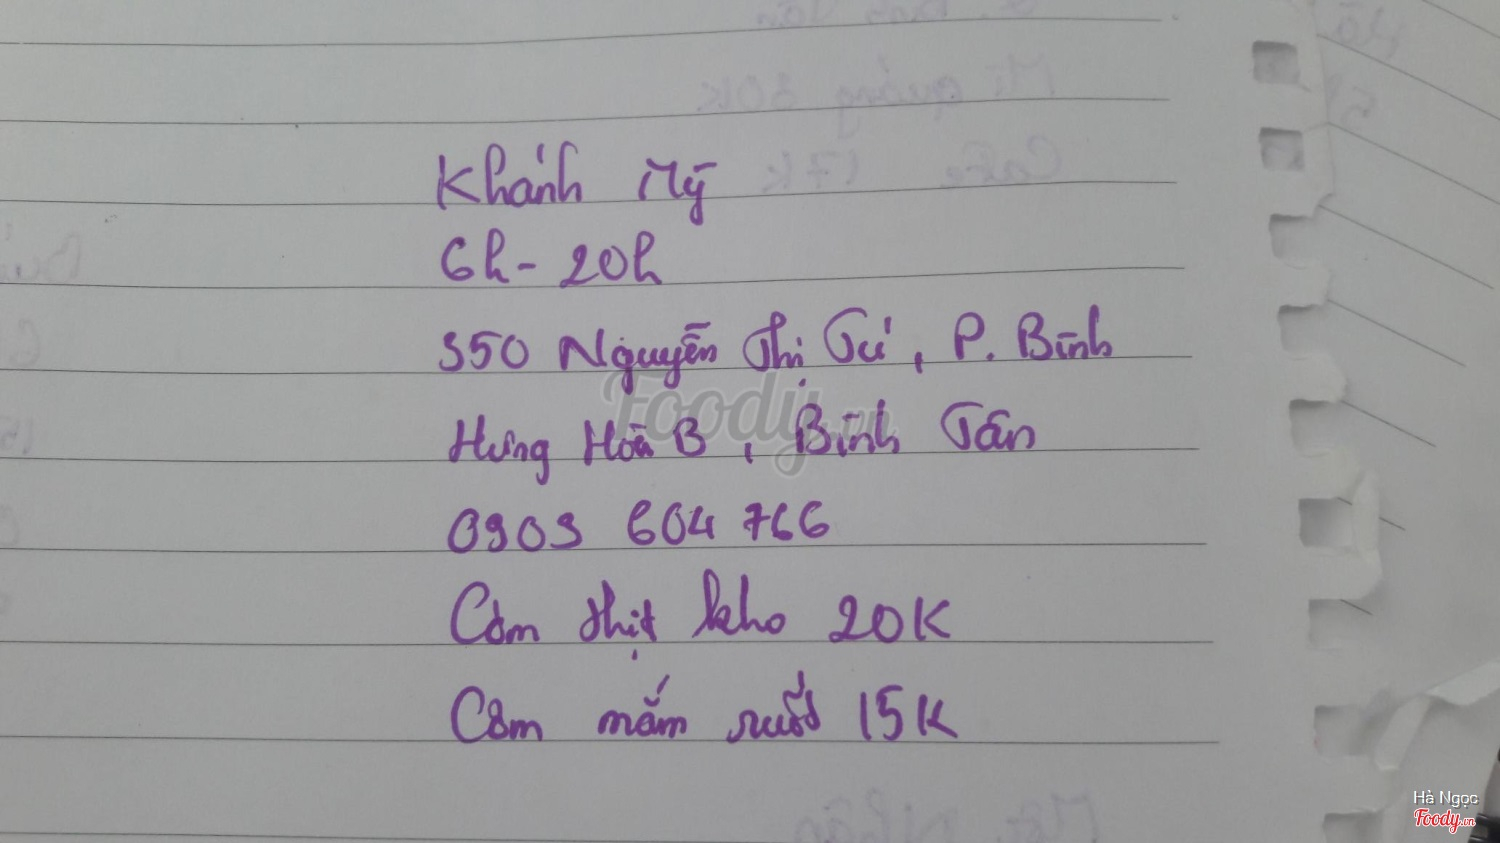 Khánh Mỹ
6h - 20h
350 Nguyễn Thị Tú, P. Bình
Hưng Hoà B, Bình Tân
0903 604 766
Cơm thịt kho 20K
Cơm mắm ruốc 15K
Foody.vn
Hà Ngọc
Foody.vn